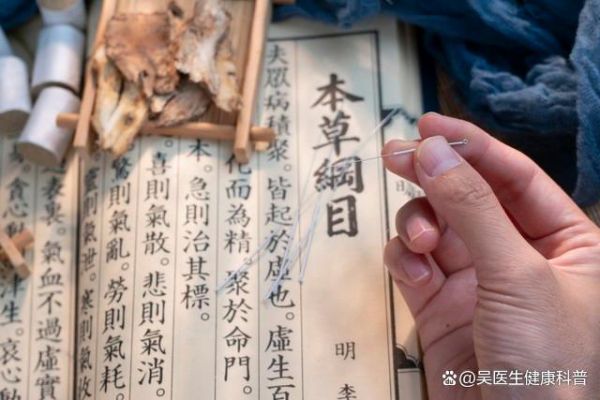 本草綱目
明 李
夫眾病積聚。皆起於虛也。虛生百
化而為精。聚於命門。
本。急則治其標。
喜則氣散。悲則氣消。
驚則氣亂。勞則氣耗。
則氣。寒則氣收
表裏。氣血不過虛實
貪心
津生。哀心
@吴医生健康科普